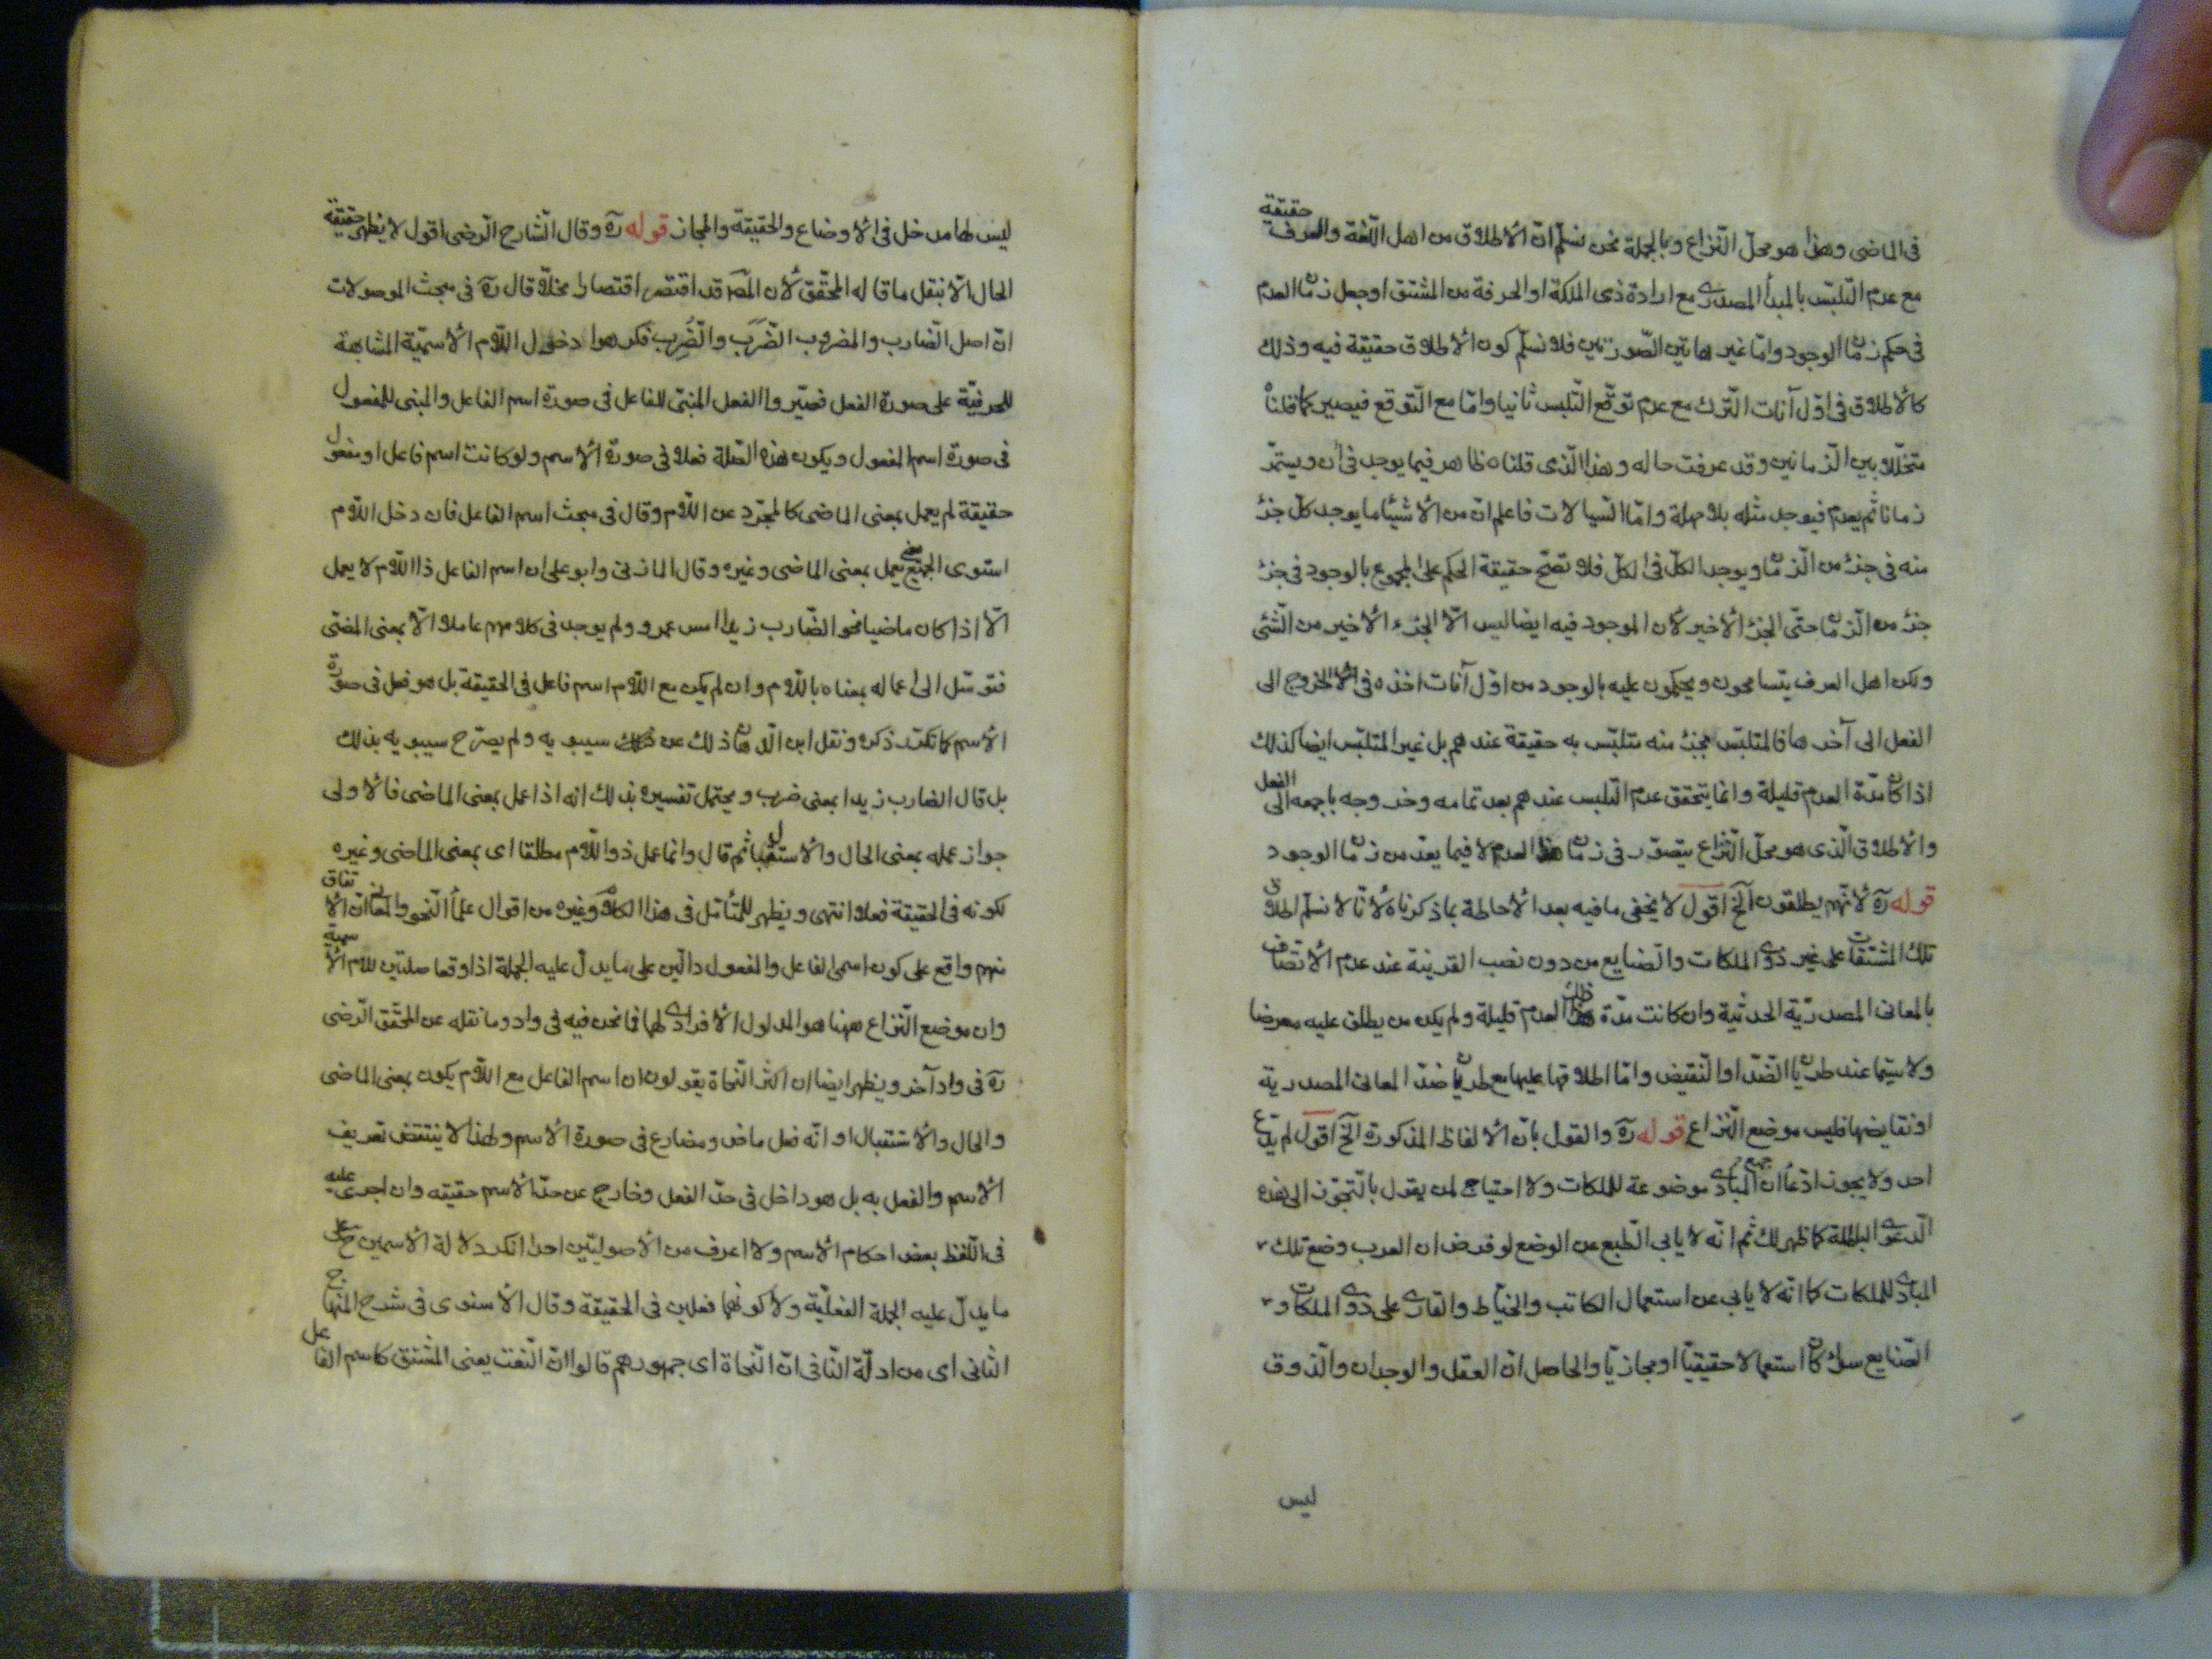 فى الماضى وهذا هو محلّ النّزاع وبالجملة نحن نسلّم انّ الأطلاق من اهل اللّغة والعرف حقيقة
مع عدم التّلبّس بالمبدأ المصدرى مع ارادة ذى الملكة او الحرفة من المشتق او جعل زمان العدم
فى حكم زمان الوجود وامّا غير هاتين الصّورتين فلا نسلّم كون الأطلاق حقيقة فيه وذلك
كالأطلاق فى اوّل آنات التّرك مع عدم توقّع التّلبس ثانيا وامّا مع التّوقع فيصير كما قلنا
متخلّلا بين الزمانين وقد عرفت حاله وهذا الّذى قلناه ظاهر فيما يوجد فى آن ويستمرّ
زمانا ثم يعدم فيوجد مثله بلا مهلة وامّا السّيالات فاعلم انّ من الأشياء ما يوجد كلّ جزء
منه فى جزء من الزّمان ويوجد الكلّ فى الكلّ فلا تصّح حقيقة الحكم على المجموع بالوجود فى جزء
جزء من الزّمان حتّى الجزء الأخير لأن الموجود فيه ايضا ليس الّا الجزء الأخير من الشّئ
ولكن اهل العرف يتسامحون ويحكمون عليه بالوجود من اوّل آنات اخذه فى الخروج الى
الفعل الى آخرها فالمتلبّس بجزء منه متلبّس به حقيقة عندهم بل غير المتلبّس ايضا كذلك
اذا كان مدّة العدم قليلة وانما يتحقق عدم التّلبس عندهم بعد تمامه وخروجه باجمعه الى الفعل
والأطلاق الّذى هو محلّ النّزاع يتصوّر فى زمان هذا العدم لا فيما يعدّ من زمان الوجود
قوله ره لأنّهم يطلقون الخ اقول لا يخفى ما فيه بعد الأحاطة بما ذكرناه لأنّا لا نسلّم اطلاق
تلك المشتقات على غير ذوى الملكات والصّنايع من دون نصب القرينة عند عدم الأتصاف
بالمعانى المصدريّة الحدثية وان كانت مدّة ذلك العدم قليلة ولم يكن من يطلق عليه معرضا
ولا سيّما عند طريان الضّد او النّقيض وامّا اطلاقها عليها مع طريان ضدّ المعانى المصدرية
او نقايضها فليس موضع النّزاع قوله ره والقول بانّ الألفاظ المذكورة الخ اقول لم يدّع
احد ولا يجوز ادّعاء ان جميع المبادى موضوعة للملكات ولا احتياج لمن يقول بالتّجوّز الى هذه
الدّعوى الباطلة كما ظهر لك ثم انّه لا يابى الطّبع عن الوضع لو فرض ان العرب وضع تلك
المبادى للملكات كما انّه لا يابى عن استعمال الكاتب والخيّاط والقارى على ذوى الملكات و
الصّنايع سواء كان استعمالا حقيقيّا او مجازيّا والحاصل انّ العقل والوجدان والذّوق
ليس
ليس لها مدخل فى الأوضاع والحقيقة والمجاز قوله ره وقال الشّارح الرّضى اقول لا يظهر حقيقة
الحال الّا بنقل ما قاله المحقّق لأن المصّ قد اقتصر اقتصارا مخلّا قال ره فى مبحث الموصولات
انّ اصل الضّارب والمضروب الضَرَبَ والضُرِب فكرهوا دخول اللّام الأسميّة المشابهة
للحرفيّة على صورة الفعل فصيّروا الفعل المبنىّ للفاعل فى صورة اسم الفاعل والمبنى للمفعول
فى صورة اسم المفعول ويكون هذه الصّلة فعلا فى صورة الأسم ولو كانت اسم فاعل او مفعول
حقيقة لم يعمل بمعنى الماضى كالمجرّد عن اللّام وقال فى مبحث اسم الفاعل فان دخل اللّام
استوى الجميع يعمل بمعنى الماضى وغيره وقال المازنى وابو على ان اسم الفاعل ذا اللّام لا يعمل
الّا اذا كان ماضيا نحو الضّارب زيدا امس عمرو ولم يوجد فى كلامهم عاملا الّا بمعنى المضىّ
فتوسّل الى اعماله بمعناه باللّام وان لم يكن مع اللّام اسم فاعل فى الحقيقة بل هو فعل فى صورة
الأسم كما تكرّر ذكره ونقل ابن الدّهان ذلك عن سيبويه ولم يصرّح سيبويه بذلك
بل قال الضارب زيدا بمعنى ضرب ويحتمل تفسيره بذلك انه اذا عمل بمعنى الماضى فالأولى
جواز عمله بمعنى الحال والأستقبال ثم قال وانما عمل ذو اللّام مطلقا اى بمعنى الماضى وغيره
لكونه فى الحقيقة فعلا انتهى ويظهر للمتأمّل فى هذا الكلام وغيره من اقوال علماء النّحو والمعانى ان الأتفاق
منهم واقع على كون اسمى الفاعل والمفعول دالّين على ما يدلّ عليه الجملة اذا وقعا صلتين للام الأسمية
وان موضع النّزاع ههنا هو المدلول الأفرادى لهما فما نحن فيه فى واد وما نقله عن المحقّق الرّضى
ره فى واد آخر ويظهر ايضا ان اكثر النّحاة يقولون ان اسم الفاعل مع اللّام يكون بمعنى الماضى
والحال والأستقبال او انّه فعل ماض ومضارع فى صورة الأسم ولهذا لا ينتقض تعريف
الأسم والفعل به بل هو داخل فى حدّ الفعل وخارج عن حدّ الأسم حقيقه وان اجرى عليه
فى اللّفظ بعض احكام الأسم ولا اعرف من الأصوليّين احدا انكر دلالة الأسمين ح على
ما يدلّ عليه الجملة الفعليّة ولا كونهما فعلين فى الحقيقة وقال الأسنوى فى شرح المنهاج
الثانى اى من ادلّة النّافى انّ النّحاة اى جمهورهم قالوا انّ النّعت يعنى المشتق كاسم الفاعل